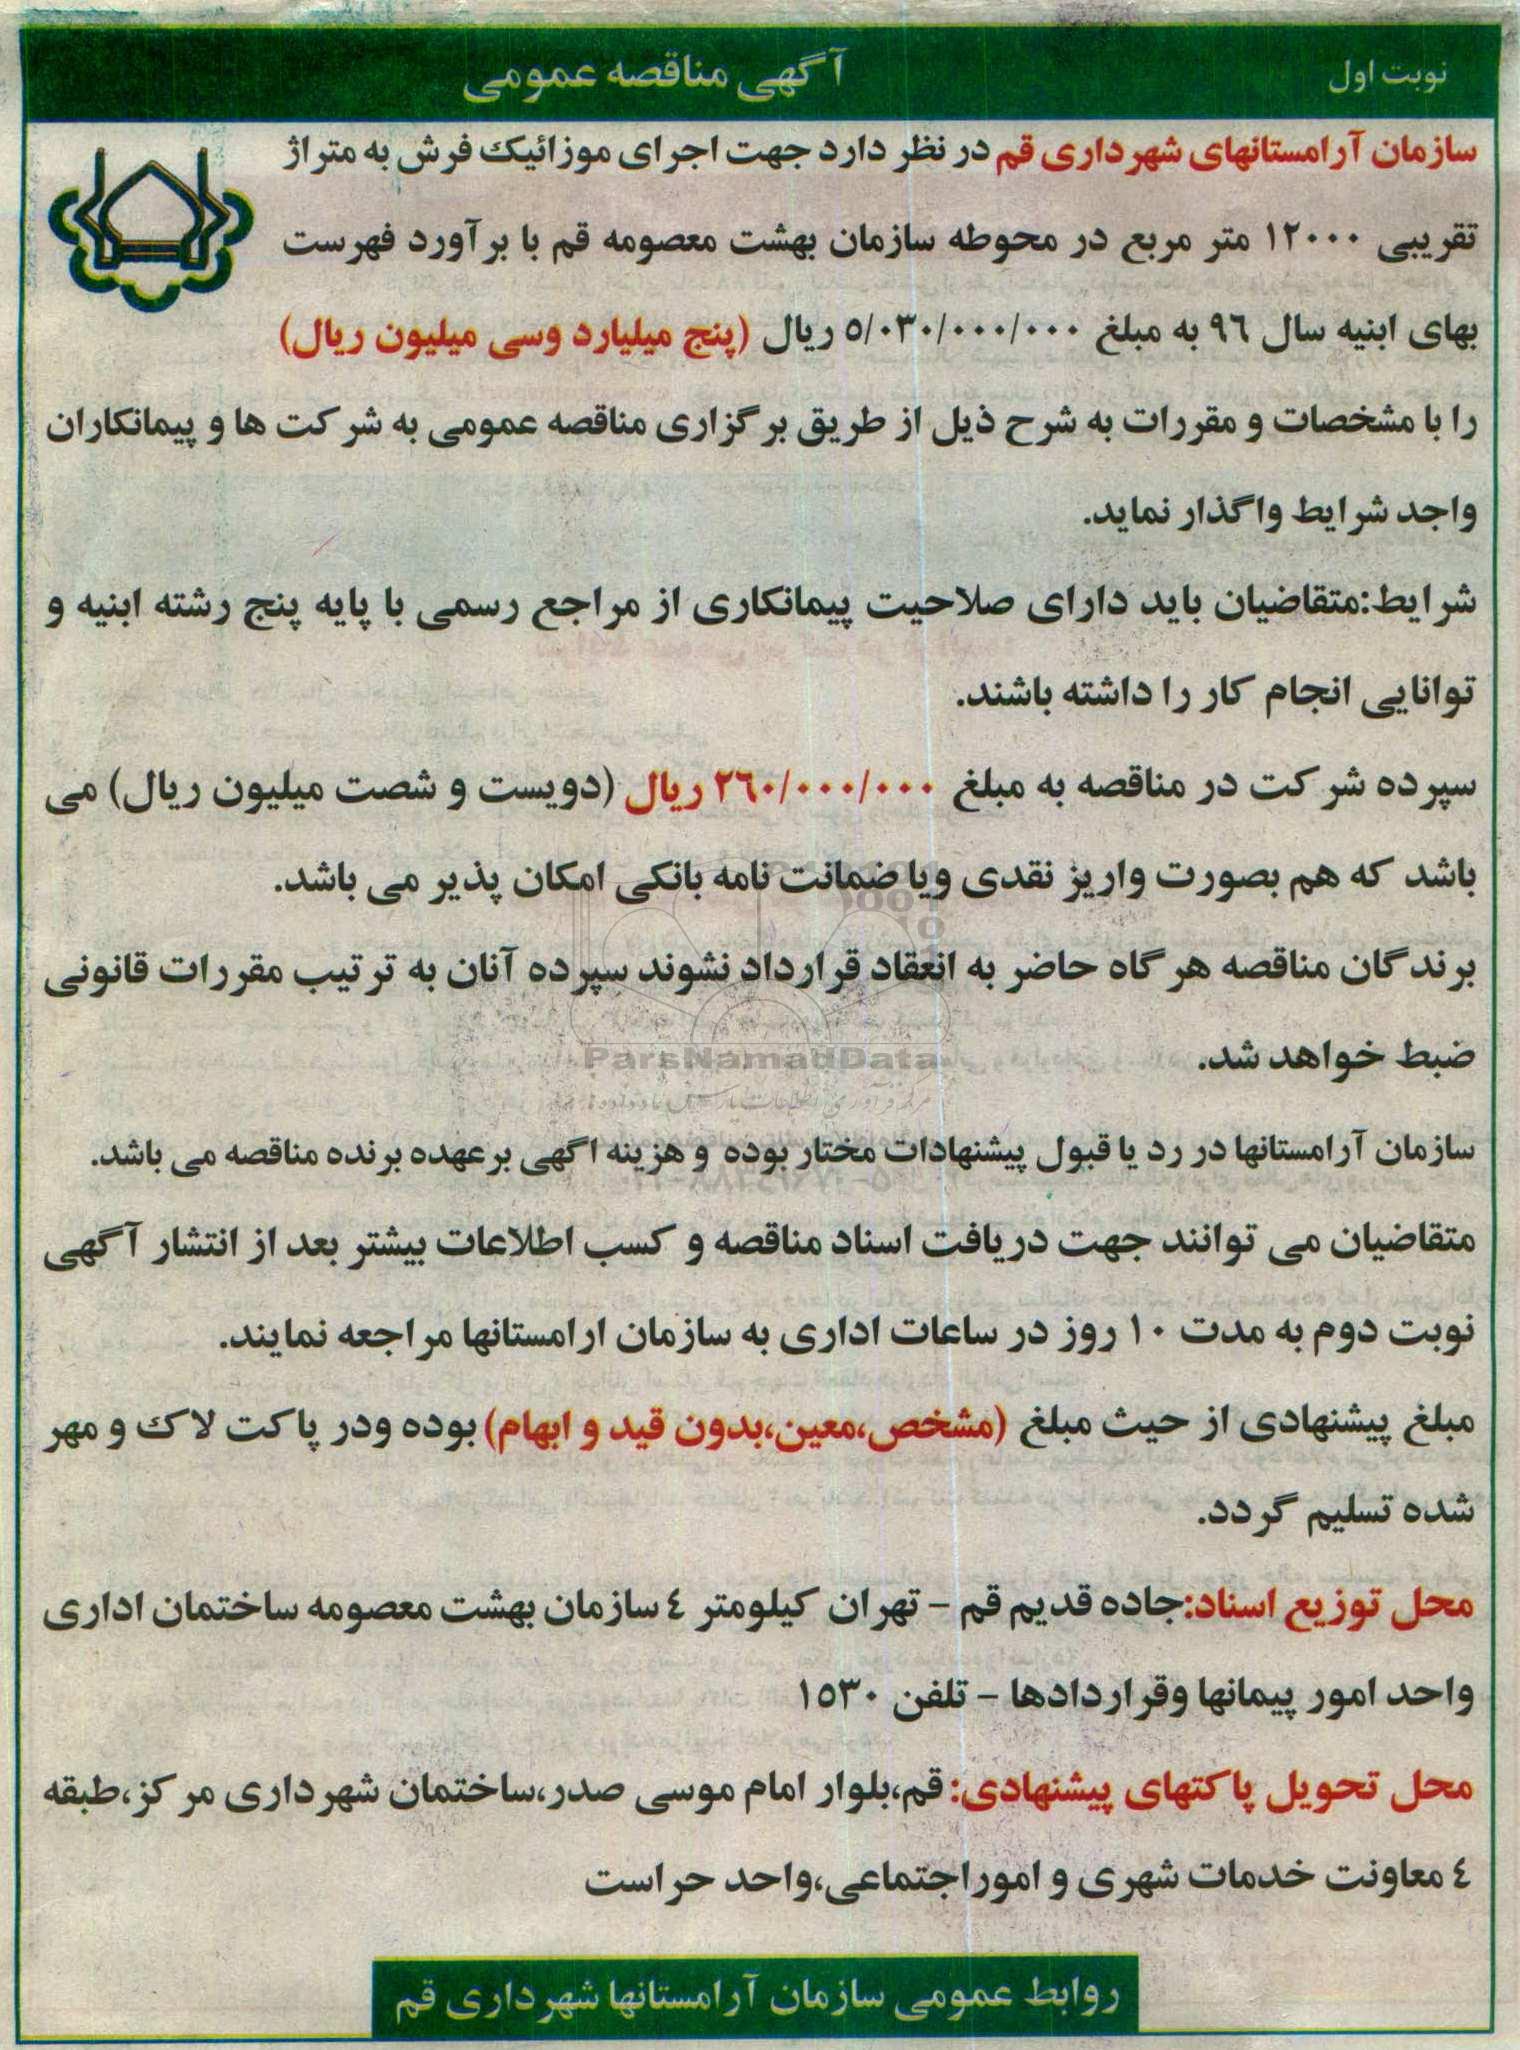 نوبت اول
آگهی مناقصه عمومی
سازمان آرامستانهای شهرداری قم در نظر دارد جهت اجرای موزائیک فرش به متراژ
تقریبی ۱۲۰۰۰ متر مربع در محوطه سازمان بهشت معصومه قم با برآورد فهرست
بهای ابنیه سال ۹۶ به مبلغ ۵/۰۳۰/۰۰۰/۰۰۰ ریال (پنج میلیارد وسی میلیون ریال)
را با مشخصات و مقررات به شرح ذیل از طریق برگزاری مناقصه عمومی به شرکت ها و پیمانکاران
واجد شرایط واگذار نماید.
شرایط:متقاضیان باید دارای صلاحیت پیمانکاری از مراجع رسمی با پایه پنج رشته ابنیه و
توانایی انجام کار را داشته باشند.
سپرده شرکت در مناقصه به مبلغ ۲۶۰/۰۰۰/۰۰۰ ریال (دویست و شصت میلیون ریال) می
باشد که هم بصورت واریز نقدی ویا ضمانت نامه بانکی امکان پذیر می باشد.
برندگان مناقصه هرگاه حاضر به انعقاد قرارداد نشوند سپرده آنان به ترتیب مقررات قانونی
ضبط خواهد شد.
ParsNamadData
سازمان آرامستانها در رد یا قبول پیشنهادات مختار بوده و هزینه اگهی برعهده برنده مناقصه می باشد.
متقاضیان می توانند جهت دریافت اسناد مناقصه و کسب اطلاعات بیشتر بعد از انتشار آگهی
نوبت دوم به مدت ۱۰ روز در ساعات اداری به سازمان ارامستانها مراجعه نمایند.
مبلغ پیشنهادی از حیث مبلغ (مشخص،معین،بدون قید و ابهام) بوده ودر پاکت لاک و مهر
شده تسلیم گردد.
محل توزیع اسناد:جاده قدیم قم - تهران کیلومتر ۴ سازمان بهشت معصومه ساختمان اداری
واحد امور پیمانها وقراردادها - تلفن ۱۵۳۰
محل تحویل پاکتهای پیشنهادی: قم،بلوار امام موسی صدر،ساختمان شهرداری مرکز،طبقه
۴ معاونت خدمات شهری و اموراجتماعی،واحد حراست
روابط عمومی سازمان آرامستانها شهرداری قم